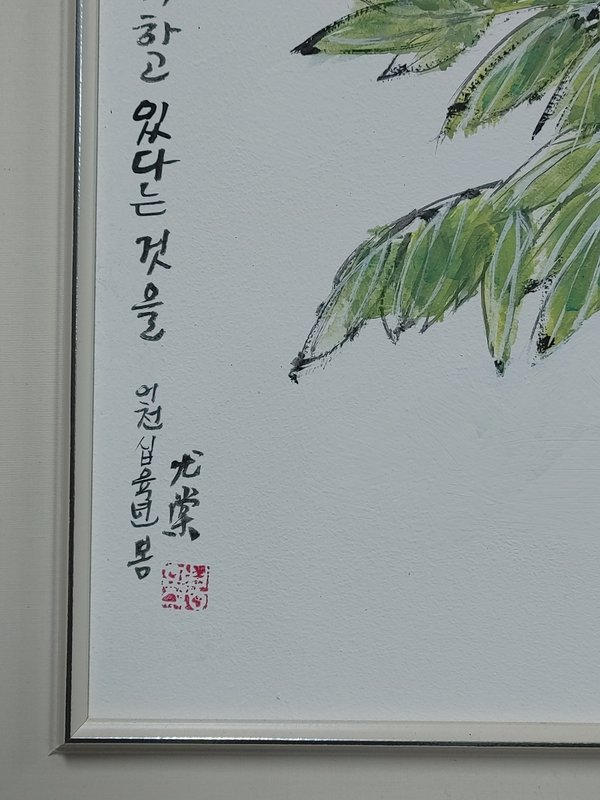 하고 있다는 것을
이천십육년 봄
尤棠